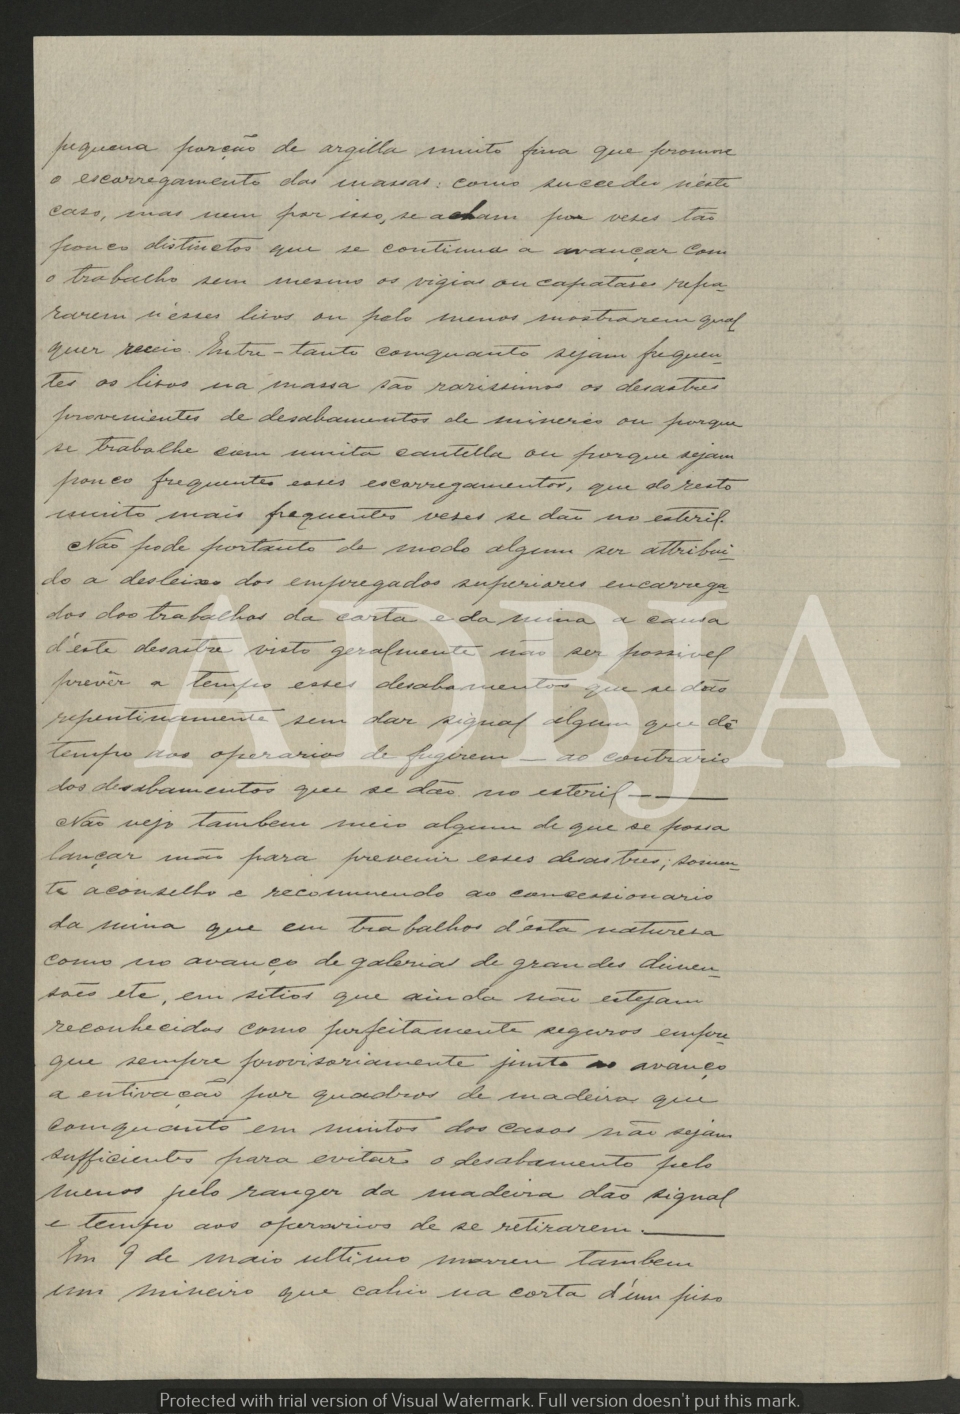 pequena porção de argilla muito fina que promove
o escorregamento das massas: como succedeu n'este
caso, mas nem por isso, se acham por veses tão
pouco distinctos que se continua a avançar com
o trabalho sem mesmo os vigias ou capatases repa-
rarem n'esses lisos ou pelo menos mostrarem qual
quer receio. Entre-tanto comquanto sejam frequen-
tes os lisos na massa são rarissimos os desastres
provenientes de desabamentos de minerio ou porque
se trabalhe com muita cautella ou porque sejam
pouco frequentes esses escorregamentos, que do resto
muito mais frequentes veses se dão no esteril.
Não pode portanto de modo algum ser attribui-
do a desleixo dos empregados superiores encarrega-
dos dos trabalhos da corta e da mina a causa
d'este desastre visto geralmente não ser possivel
prevêr a tempo esses desabamentos que se dão
repentinamente sem dar signal algum que dê
tempo aos operarios de fugirem — ao contrario
dos desabamentos que se dão no esteril — —
Não vejo tambem meio algum de que se possa
lançar mão para prevenir esses desastres; somen-
te aconselho e recommendo ao concessionario
da mina que em trabalhos d'esta naturesa
como no avanço de galerias de grandes dimen-
sões etc, em sitios que ainda não estejam
reconhecidos como perfeitamente seguros empre-
gue sempre provisoriamente junto ao avanço
a entivação por quadros de madeira que
comquanto em muitos dos casos não sejam
sufficientes para evitar o desabamento pelo
menos pelo ranger da madeira dão signal
e tempo aos operarios de se retirarem. —
Em 9 de maio ultimo morreu tambem
um mineiro que cahiu na corta d'um piso
ADBJA
Protected with trial version of Visual Watermark. Full version doesn't put this mark.